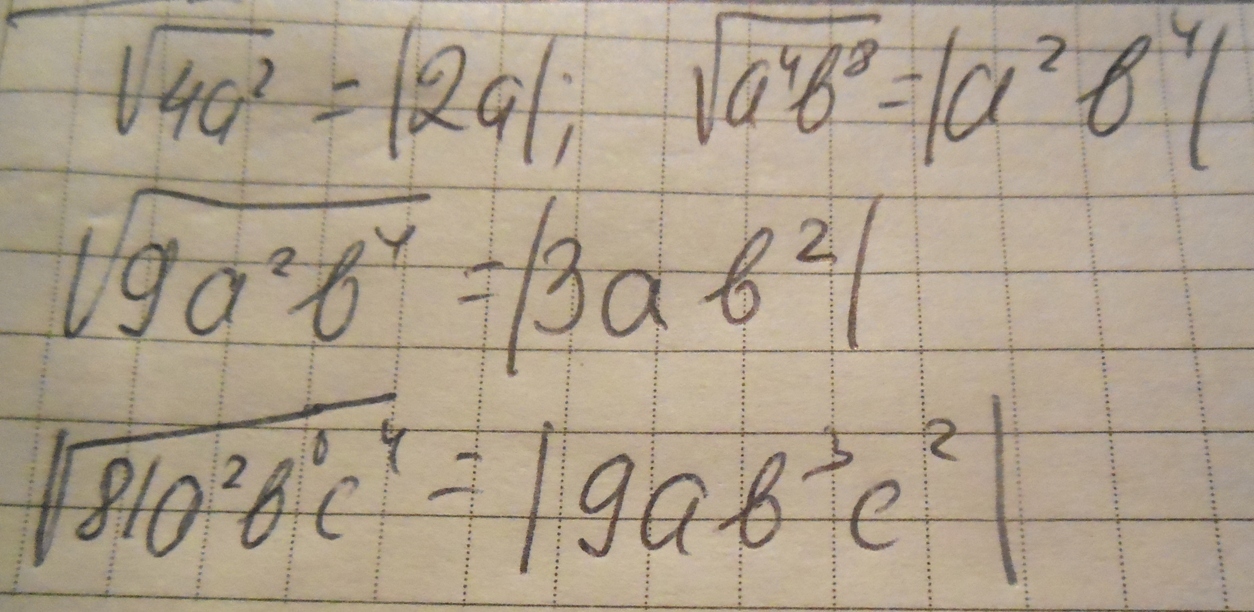 √4a² = |2a|; √a⁴b⁸ = |a² b⁴|
√9a²b⁴ = |3a b²|
√81a²b⁶c⁴ = |9ab³c²|